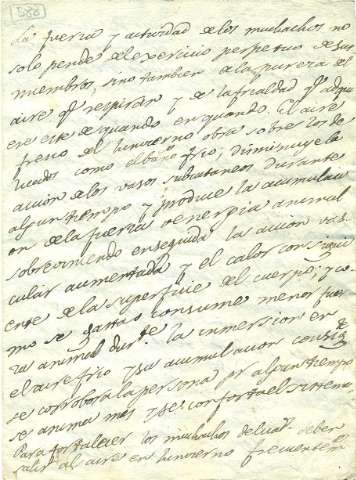 588
La fuerza y actividad de los muchachos no
solo pende del exercicio perpetuo de sus
miembros, sino tambien de la pureza del
aire qe. respiran y de la frialdad qe. adqui
ere este de quando en quando. El aire
fresco del hinvierno obra sobre los de
licados como el baño frio; disminuye la
accion de los vasos subcutaneos durante
algun tiempo y produce la acumulaci
on de la fuerza o energia animal
sobreviniendo enseguida la accion vas
cular aumentada y el calor consigui
ente de la superficie del cuerpo; y co
mo se gasta o consume menor fuer
za animal dute. la inmersion en
el aire frio y su acumulacion consigte.
se corrobora la persona pr algun tiempo
se anima mas y se conforta el sistema.
Para fortalecer los muchachos delicads. deben
salir al aire en hinvierno frecuentemte